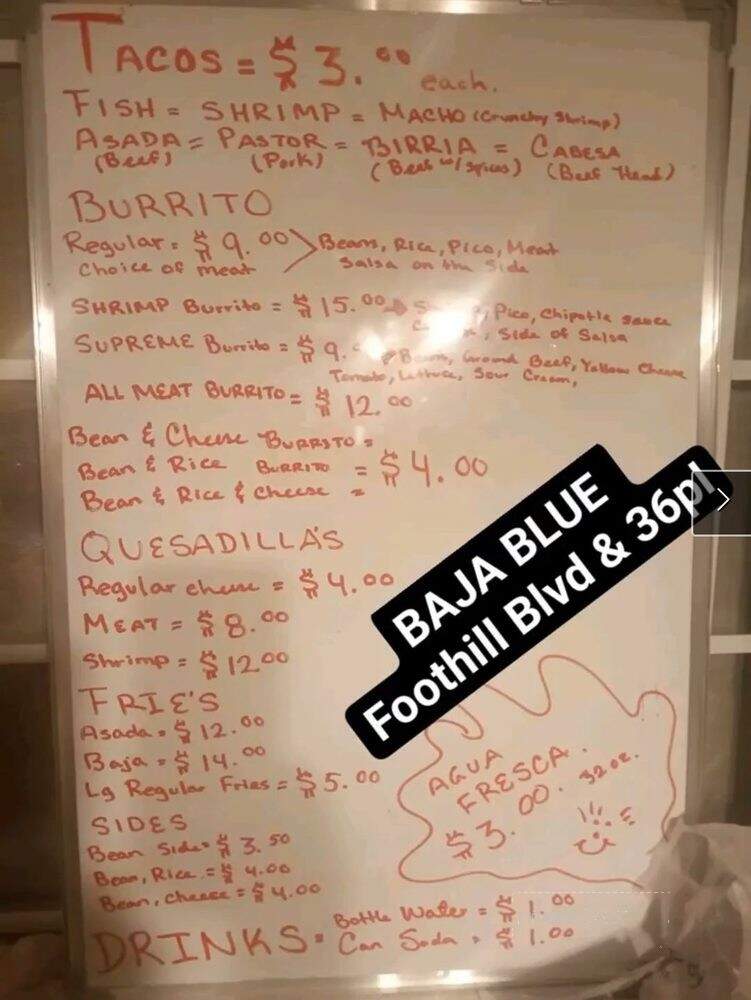 TACOS = $3.00 each.
FISH = SHRIMP = MACHO (Crunchy Shrimp)
ASADA = PASTOR = BIRRIA = CABESA
(Beef) (Pork) (Beef w/spices) (Beef Head)
BURRITO
Regular = $9.00 > Beans, Rice, Pico, Meat
Choice of meat Salsa on the Side
SHRIMP Burrito = $15.00 Pico, Chipotle sauce
, Side of Salsa
SUPREME Burrito = $9. Beans, Ground Beef, Yellow Cheese
Tomato, Lettuce, Sour Cream,
ALL MEAT BURRITO = $12.00
Bean & Cheese BURRITO =
Bean & Rice BURRITO = $4.00
Bean & Rice & Cheese =
QUESADILLA'S
Regular cheese = $4.00
MEAT = $8.00
Shrimp = $12.00
FRIE'S
Asada = $12.00
Baja = $14.00
Lg Regular Fries = $5.00
SIDES
Bean Side = $3.50
Bean, Rice = $4.00
Bean, Cheese = $4.00
DRINKS = Bottle Water = $1.00
Can Soda = $1.00
AGUA
FRESCA.
$3.00. 32oz.
BAJA BLUE
Foothill Blvd & 36pl